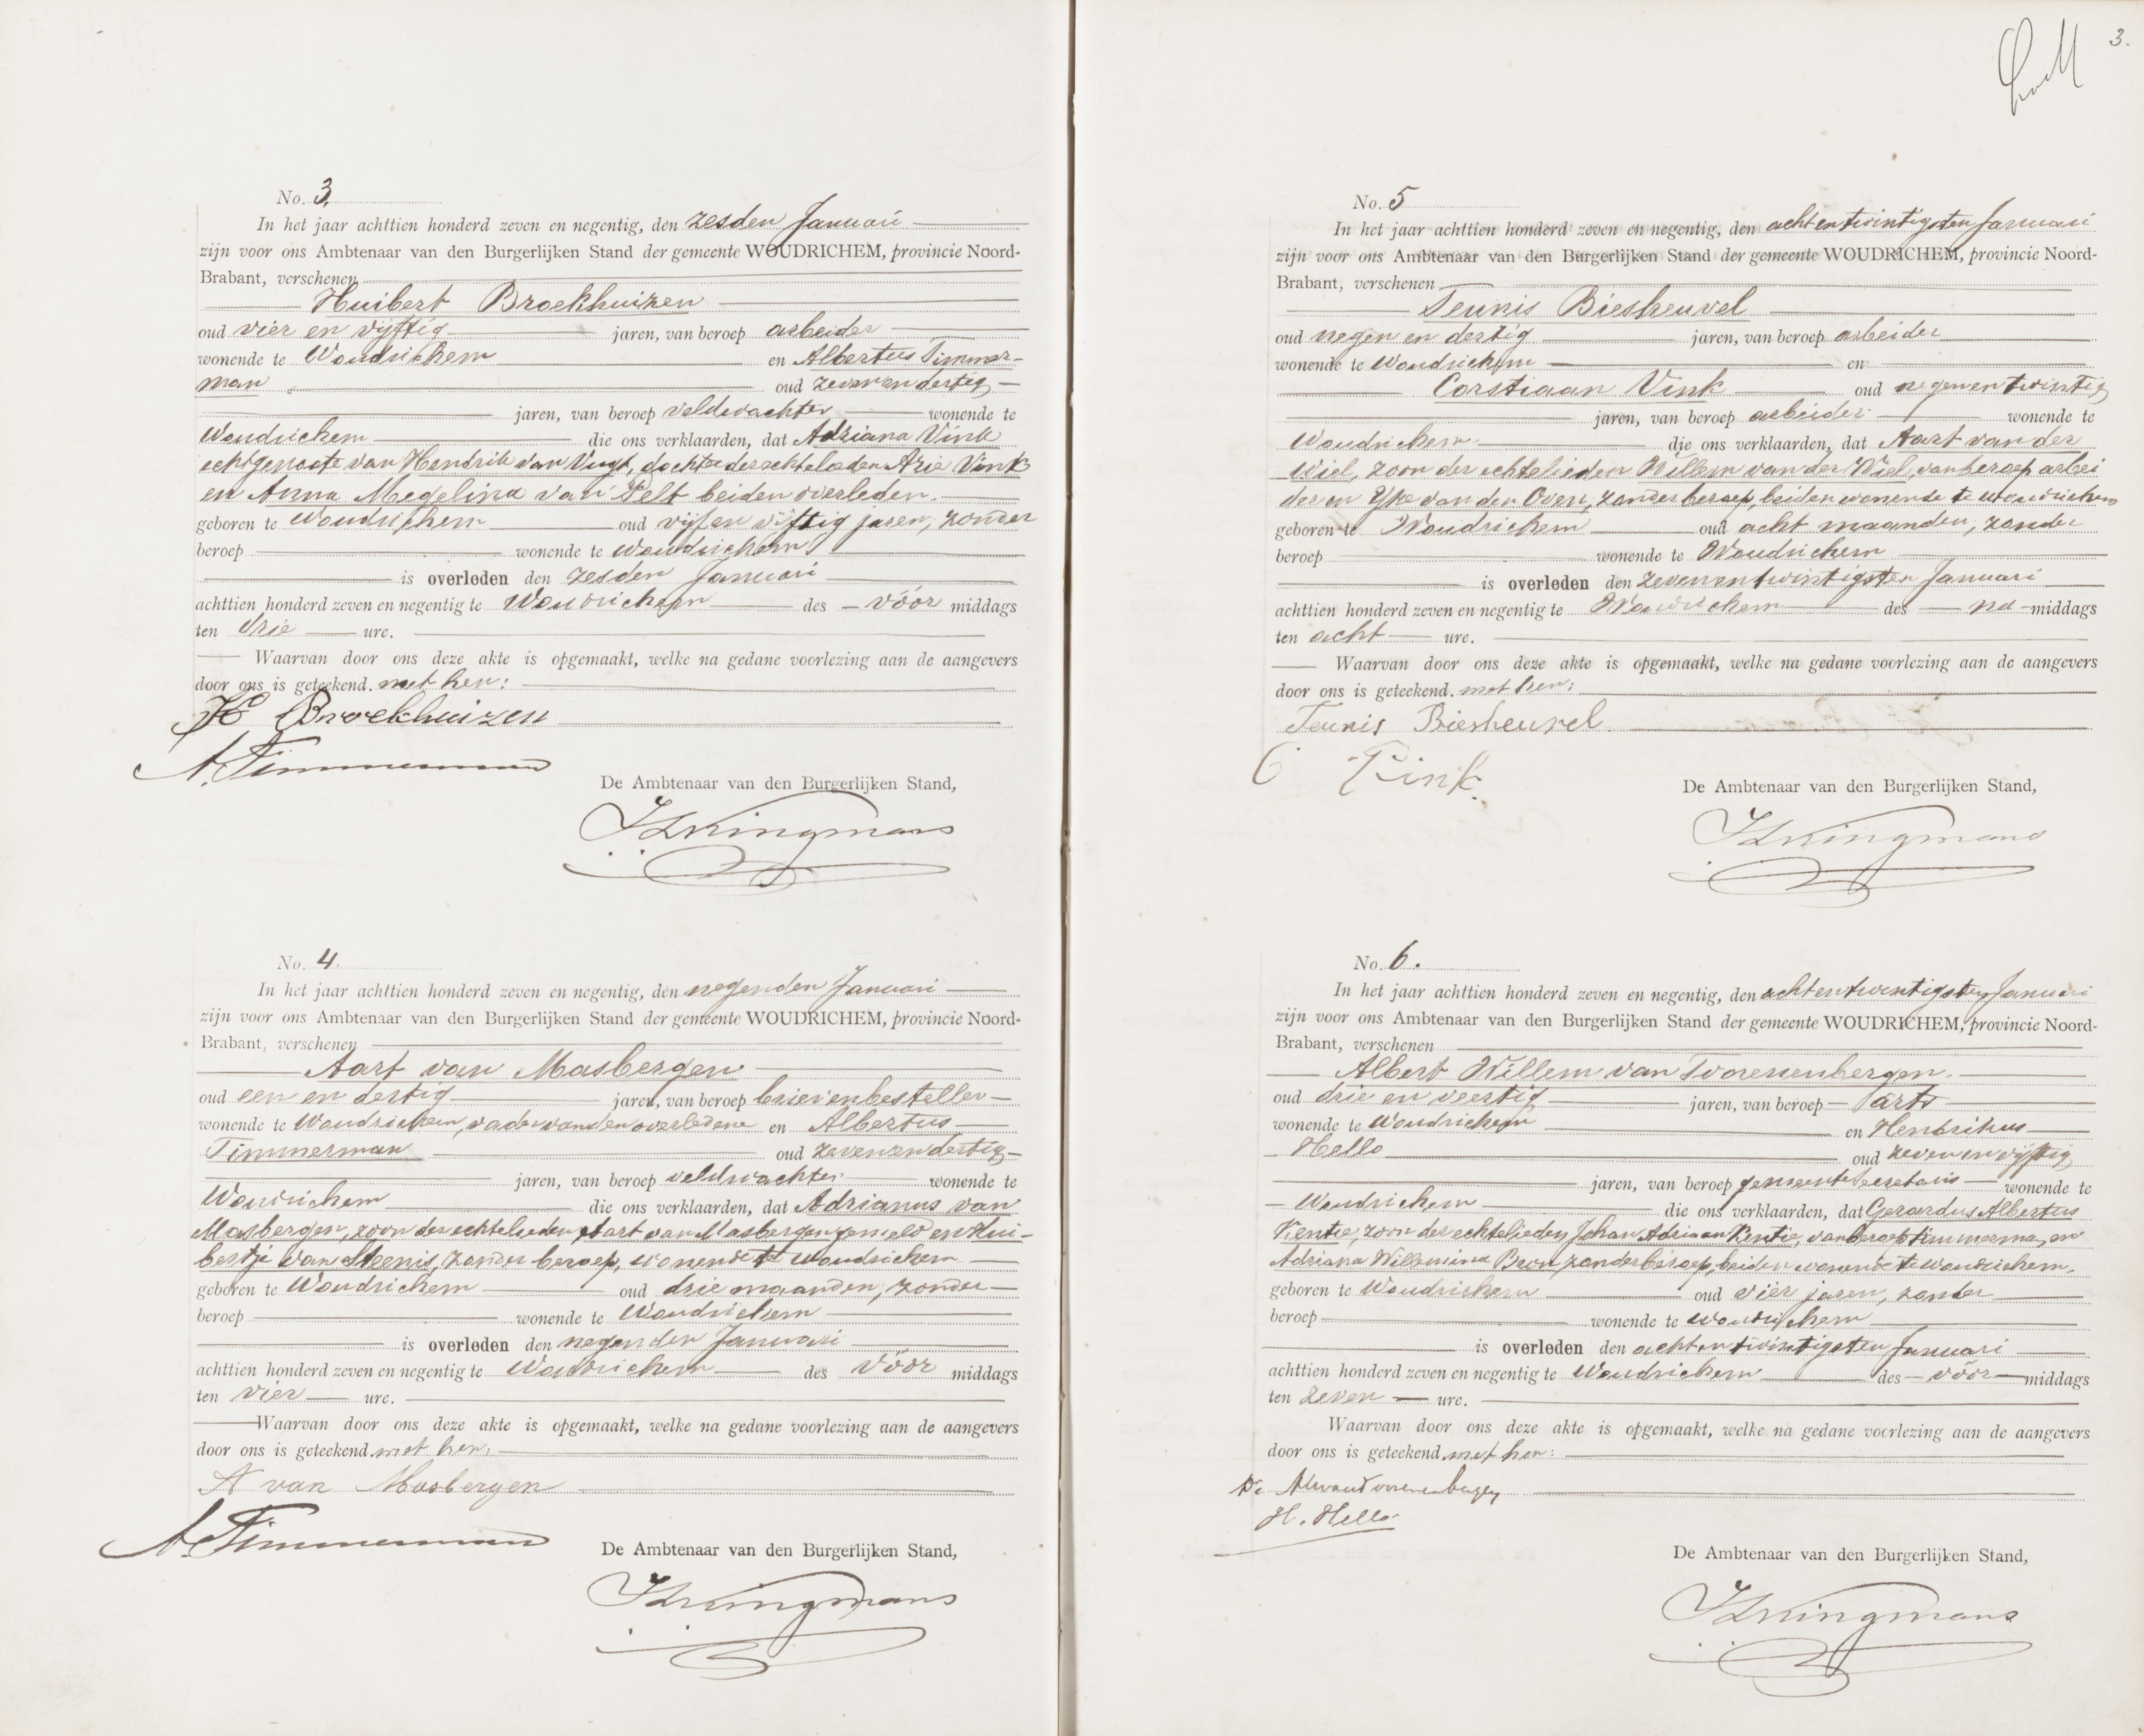 No. 3.
In het jaar achttien honderd zeven en negentig, den zesden Januari
zijn voor ons Ambtenaar van den Burgerlijken Stand der gemeente WOUDRICHEM, provincie Noord-
Brabant, verschenen
Huibert Broekhuizen
oud vier en vijftig jaren, van beroep arbeider
wonende te Woudrichem en Albertus Timmer-
man oud zevenendertig
jaren, van beroep veldwachter wonende te
Woudrichem die ons verklaarden, dat Adriana Vink
echtgenoote van Hendrik van Vugt, dochter der echtelieden Arie Vink
en Anna Megelina van Pelt beiden overleden.
geboren te Woudrichem oud vijf en vijftig jaren, zonder
beroep wonende te Woudrichem
is overleden den zesden Januari
achttien honderd zeven en negentig te Woudrichem des vóór middags
ten drie ure.
Waarvan door ons deze akte is opgemaakt, welke na gedane voorlezing aan de aangevers
door ons is geteekend. met hen:
H Broekhuizen
A. Timmerman
De Ambtenaar van den Burgerlijken Stand,
No. 4.
In het jaar achttien honderd zeven en negentig, den negenden Januari
zijn voor ons Ambtenaar van den Burgerlijken Stand der gemeente WOUDRICHEM, provincie Noord-
Brabant, verschenen
Aart van Masbergen
oud een en dertig jaren, van beroep brievenbesteller
wonende te Woudrichem, vader van den overledene en Albertus
Timmerman oud zevenendertig
jaren, van beroep veldwachter wonende te
Woudrichem die ons verklaarden, dat Adrianus van
Masbergen, zoon der echtelieden Aart van Masbergen gemeld en Hui-
bertje van Steenis, zonder beroep, wonende te Woudrichem
geboren te Woudrichem oud drie maanden, zonder
beroep wonende te Woudrichem
is overleden den negenden Januari
achttien honderd zeven en negentig te Woudrichem des vóór middags
ten vier ure.
Waarvan door ons deze akte is opgemaakt, welke na gedane voorlezing aan de aangevers
door ons is geteekend. met hen.
A van Masbergen
A. Timmerman
De Ambtenaar van den Burgerlijken Stand,
3.
No. 5
In het jaar achttien honderd zeven en negentig, den achtentwintigsten Januari
zijn voor ons Ambtenaar van den Burgerlijken Stand der gemeente WOUDRICHEM, provincie Noord-
Brabant, verschenen
Teunis Biesheuvel
oud negen en dertig jaren, van beroep arbeider
wonende te Woudrichem en
Corstiaan Vink oud negenentwintig
jaren, van beroep arbeider wonende te
Woudrichem die ons verklaarden, dat Aart van der
Wiel, zoon der echtelieden Willem van der Wiel, van beroep arbei
der en Yke van den Oven, zonder beroep, beiden wonende te Woudrichem
geboren te Woudrichem oud acht maanden, zonder
beroep wonende te Woudrichem
is overleden den zevenentwintigsten Januari
achttien honderd zeven en negentig te Woudrichem des na middags
ten acht ure.
Waarvan door ons deze akte is opgemaakt, welke na gedane voorlezing aan de aangevers
door ons is geteekend. met hen:
Teunis Biesheuvel
C Vink
De Ambtenaar van den Burgerlijken Stand,
No. 6.
In het jaar achttien honderd zeven en negentig, den achtentwintigsten Januari
zijn voor ons Ambtenaar van den Burgerlijken Stand der gemeente WOUDRICHEM, provincie Noord-
Brabant, verschenen
Albert Willem van Voorenenbergen.
oud drie en veertig jaren, van beroep arts
wonende te Woudrichem en Hendrikus
Hello oud zevenenvijftig
jaren, van beroep gemeentesecretaris wonende te
Woudrichem die ons verklaarden, dat Gerardus Albertus
Kentie, zoon der echtelieden Johan Adriaan Kentie, van beroep timmerman, en
Adriana Willemina zonder beroep, beiden wonende te Woudrichem,
geboren te Woudrichem oud vier jaren, zonder
beroep wonende te Woudrichem
is overleden den achtentwintigsten Januari
achttien honderd zeven en negentig te Woudrichem des vóór middags
ten zeven ure.
Waarvan door ons deze akte is opgemaakt, welke na gedane voorlezing aan de aangevers
door ons is geteekend. met hen:
H. Hello
De Ambtenaar van den Burgerlijken Stand,